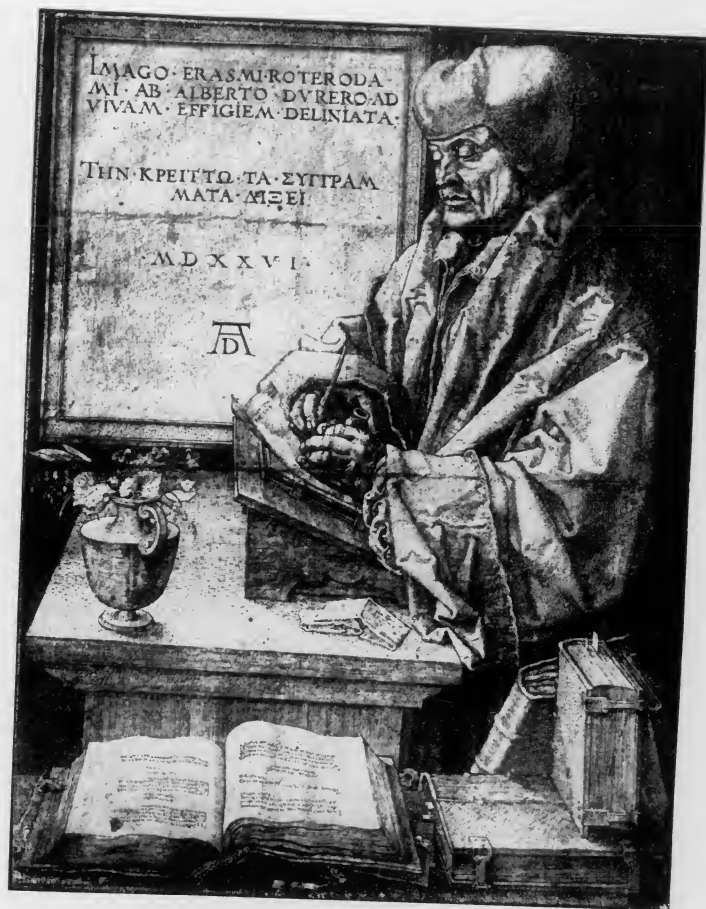 IMAGO · ERASMI · ROTERODA
MI · AB · ALBERTO · DVRERO · AD
VIVAM · EFFIGIEM · DELINIATA ·
ΤΗΝ · ΚΡΕΙΤΤΩ · ΤΑ · ΣΥΓΓΡΑΜ
ΜΑΤΑ · ΔΙΞΕΙ
MDXXVI
AD